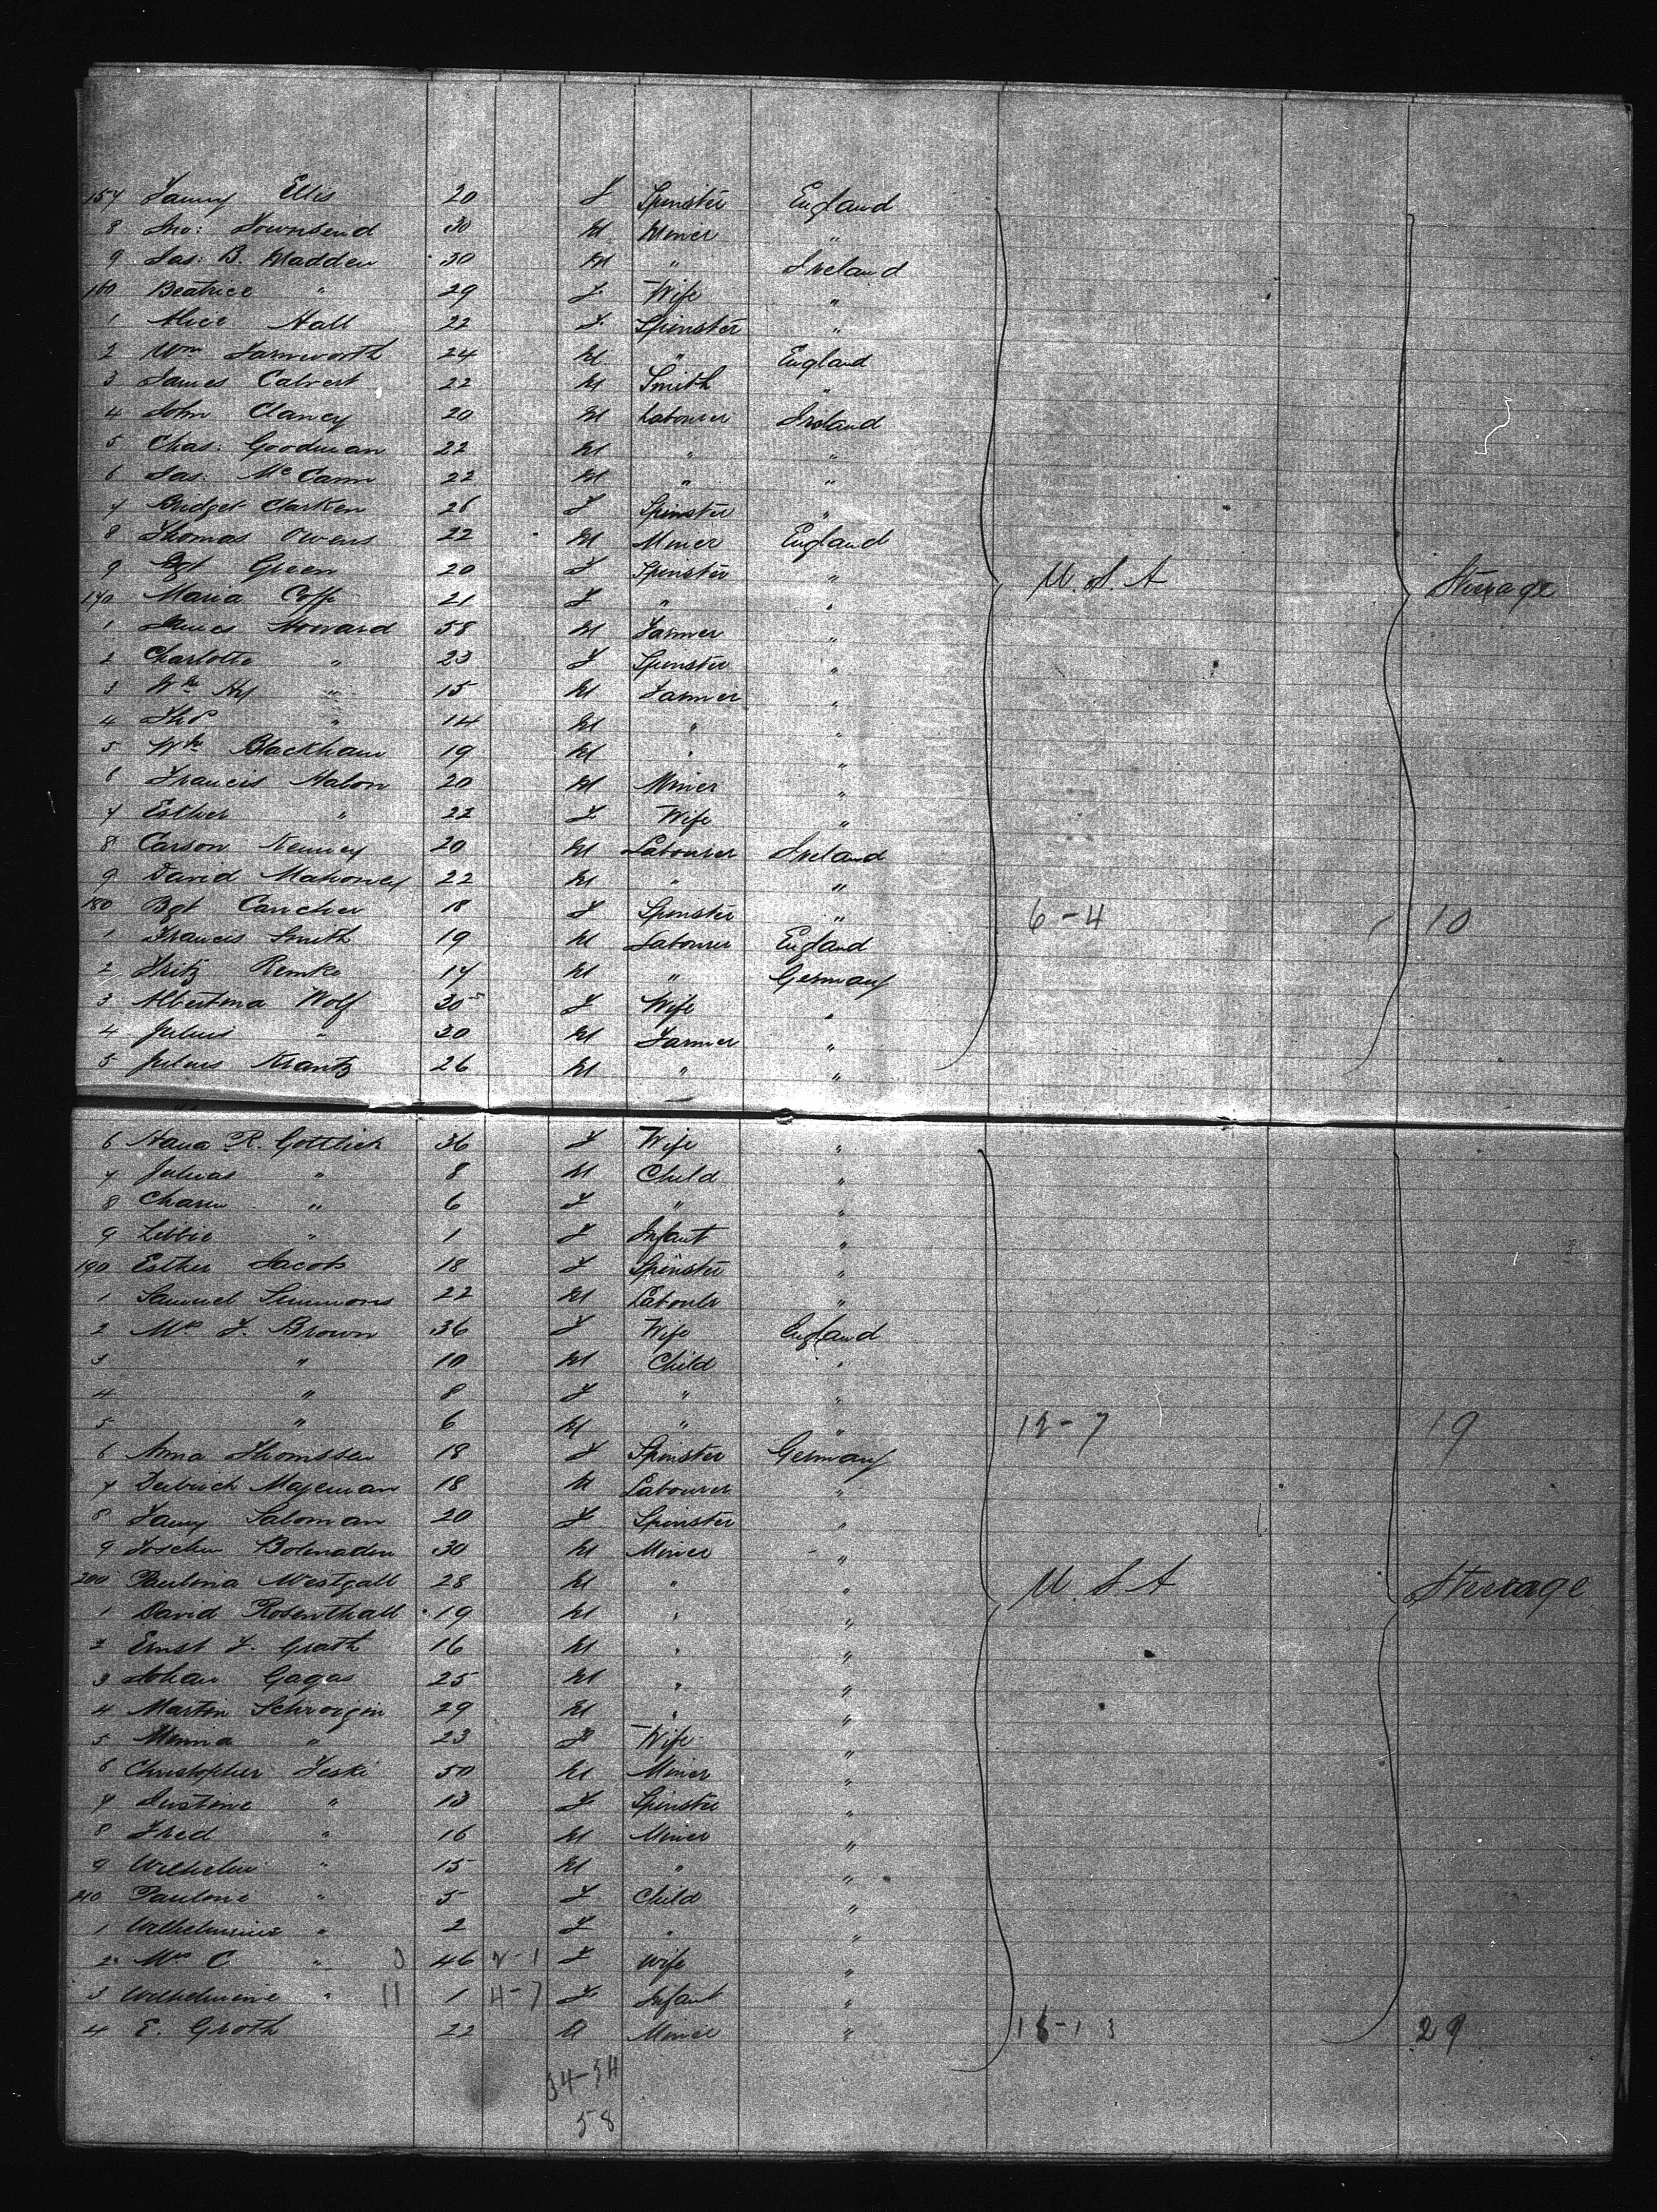 157 Fanny Ellis 20 F Spinster England
8 Jno: Townsend 30 M Miner "
9 Jas: B. Madden 30 M " Ireland
160 Beatrice " 29 F Wife "
1 Alice Hall 22 F Spinster "
2 Wm Farnworth 24 M " England
3 James Calvert 22 M Smith "
4 John Clancy 20 M Labourer Ireland
5 Chas: Goodman 22 M " "
6 Jas: McCann 22 M " "
7 Bridget Clarken 26 F Spinster "
8 Thomas Owens 22 M Miner England
9 Bgt Green 20 F Spinster " U.S.A Steerage
170 Maria 21 F " "
1 James Howard 58 M Farmer "
2 Charlotte " 23 F Spinster "
3 Wm Hy " 15 M Farmer "
4 Thos " 14 M " "
5 Wm Blackham 19 M " "
6 Francis Halon 20 M Miner "
7 Esther " 22 F Wife "
8 Carson Kenney 20 M Labourer Ireland
9 David Mahoney 22 M " "
180 Bgt 18 F Spinster " 6-4 10
1 Francis Smith 19 M Labourer England
2 Fritz Remke 17 M " Germany
3 Albertina Wolf 30 F Wife "
4 Julius " 30 M Farmer "
5 Julius Krantz 26 M " "
6 Hana R. Gottlieb 36 F Wife "
7 Julius " 8 M Child "
8 " 6 F " "
9 Libbie " 1 F Infant "
190 Esther Jacob 18 F Spinster "
1 Samuel Simmons 22 M Labourer "
2 Mrs F. Brown 36 F Wife England
3 " 10 M Child "
4 " 8 F " "
5 " 6 M " " 12-7 19
6 Anna Thomssen 18 F Spinster Germany
7 Majeman 18 M Labourer "
8 Fanny Saloman 20 F Spinster "
9 30 M Miner "
200 Paulina Westgall 28 M " " U.S.A Steerage
1 David Rosenthall 19 M " "
2 Ernst F. Grath 16 M " "
3 Johan Gagas 25 M " "
4 Martin 29 M " "
5 Minna " 23 F Wife "
6 Christopher Jeske 50 M Miner "
7 Justine " 13 F Spinster "
8 Fred " 16 M Miner "
9 Wilhelm " 15 M " "
210 Pauline " 5 F Child "
1 Wilhelmine " 2 F " "
2 Mrs C. " 3 46 2-1 F Wife "
3 Wilhelmine " 11 1 4-7 F Infant "
4 E. Groth 22 Miner " 16-13 29
34-54
58